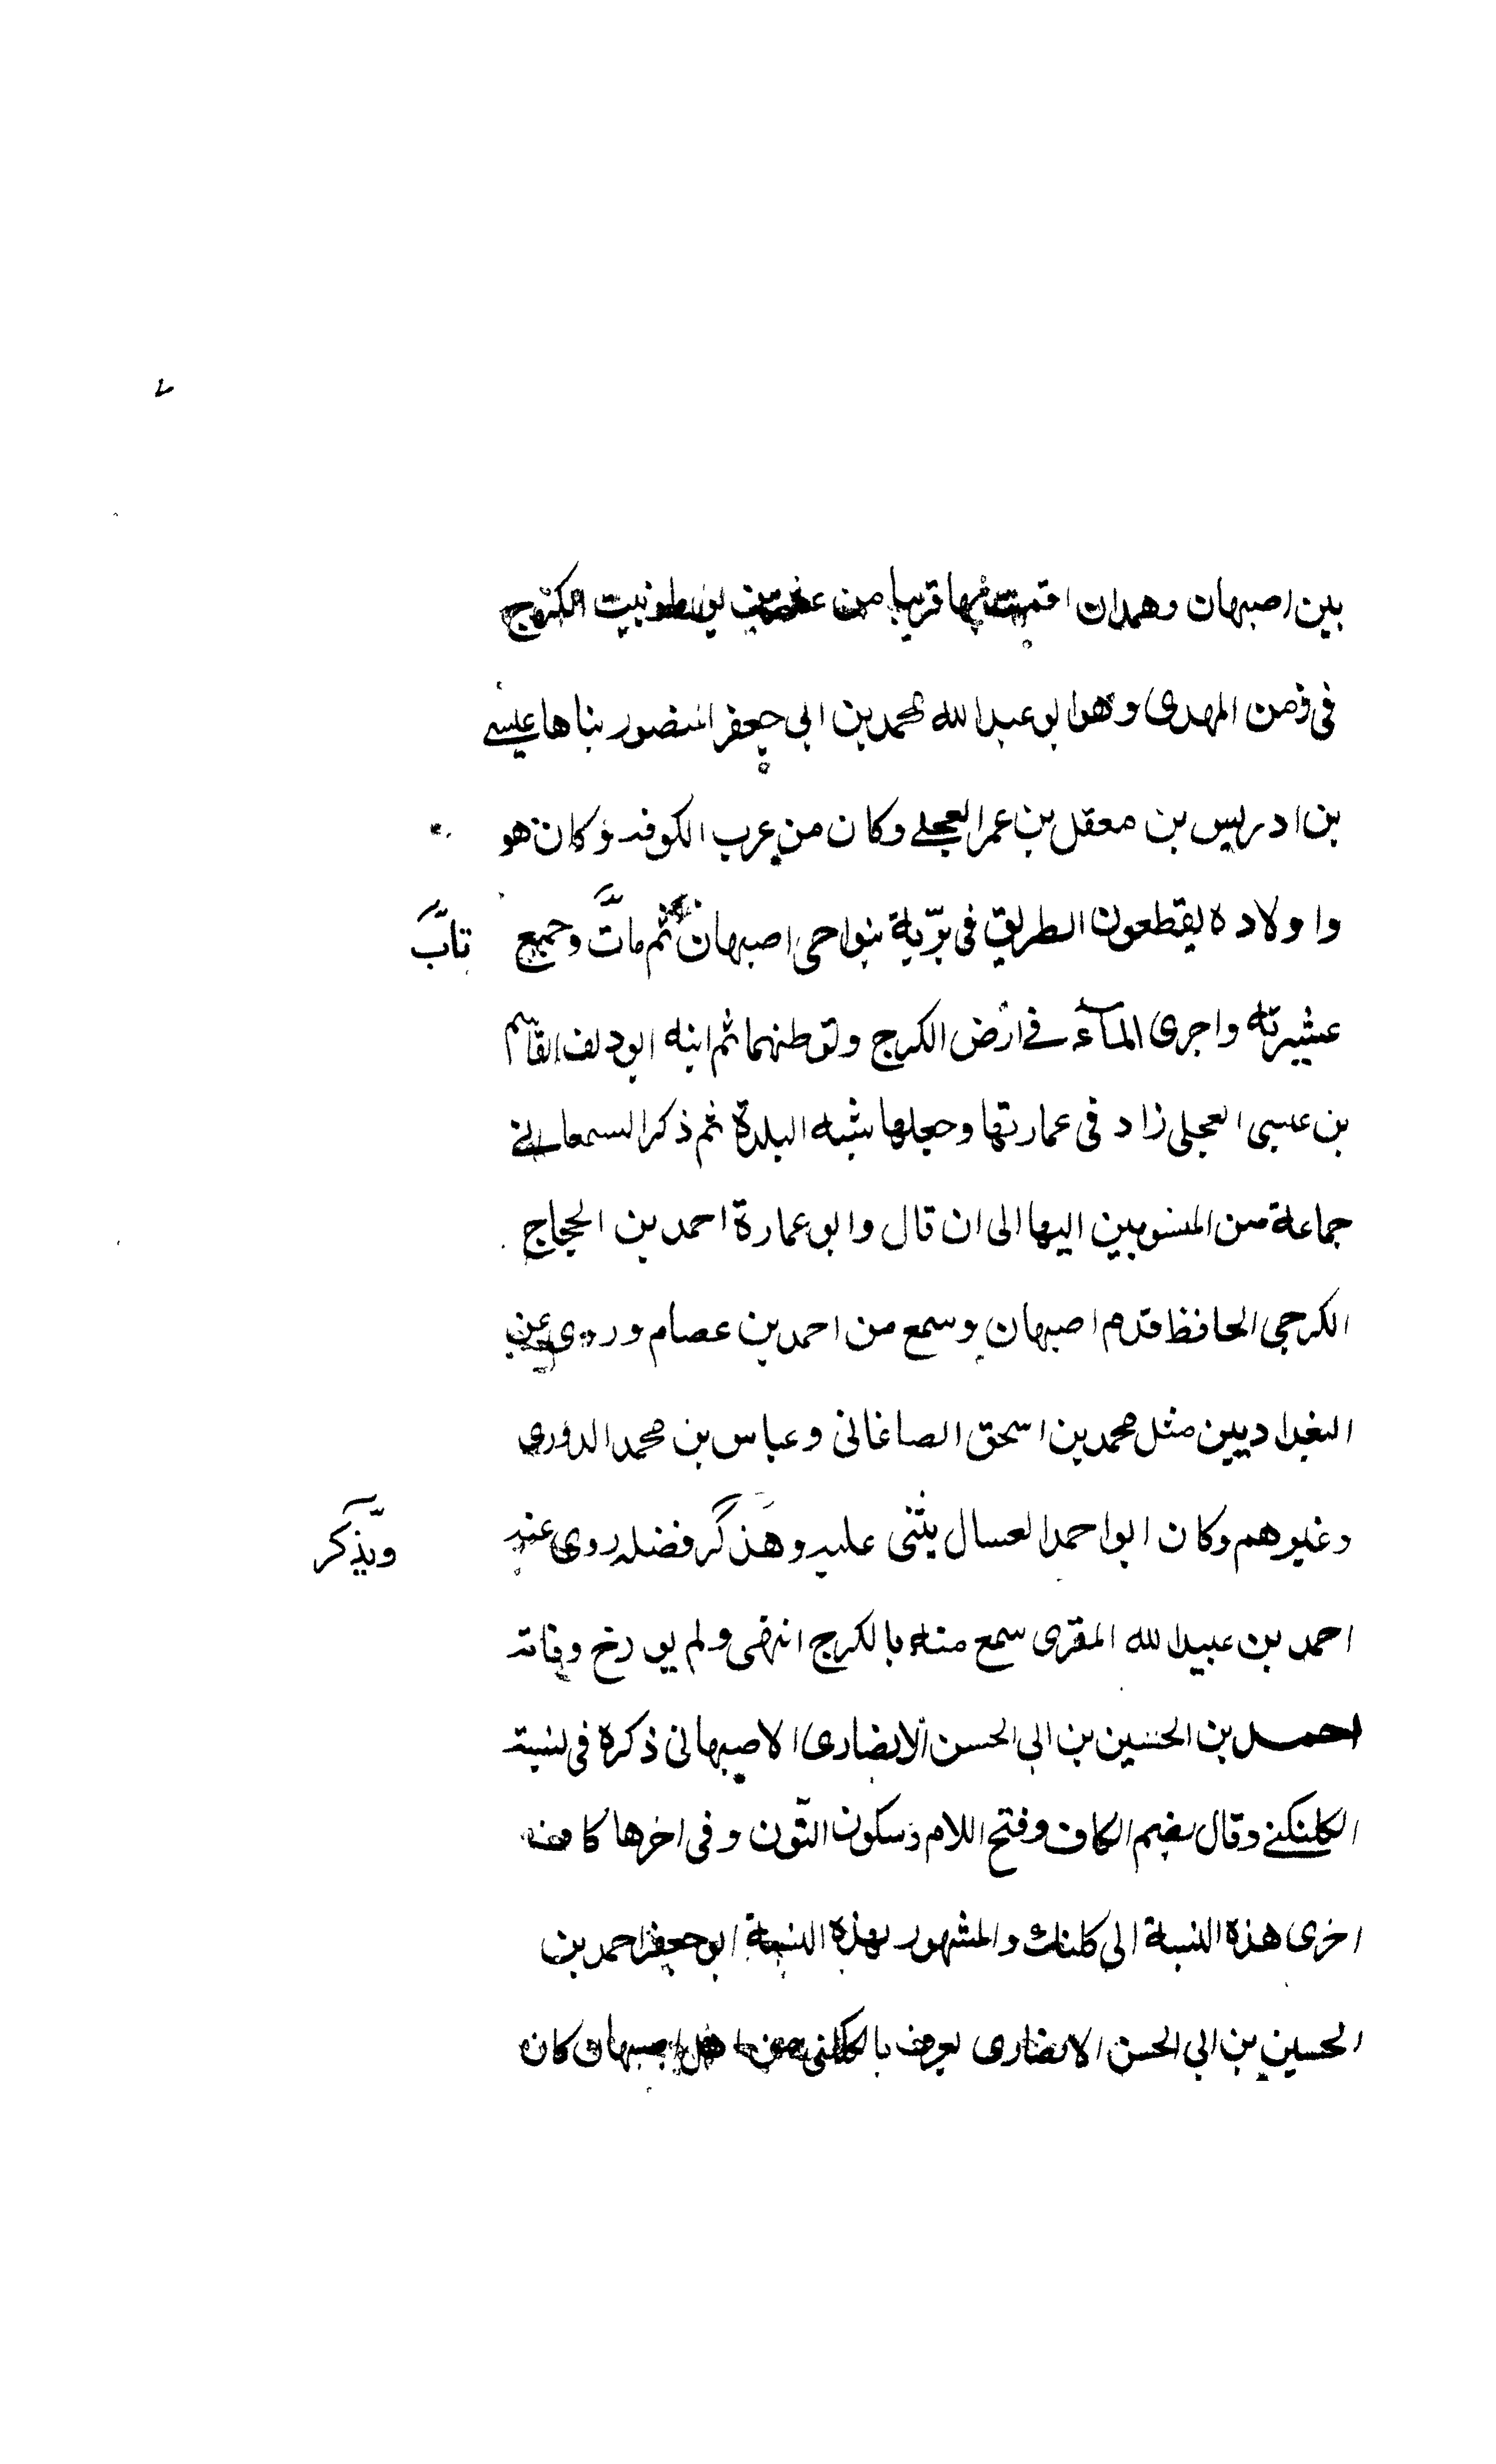 ٧
بين اصبهان وهمدان اقمت بها قريبا من عشرين يوما بنيت الكرج
فى زمن المهدى وهو ابو عبد الله محمد بن ابى جعفر المنصور بناها عيسے
بن ادريس بن معقل بن عمر العجلے وكان من عرب الكوفه وكان هو
واولاده يقطعون الطريق فى برّية بنواحى اصبهان ثم مات وجميع
تاب
عشيرته واجرى المآء فے ارض الكرج وتوطنهما ثم ابنه ابو دلف القاسم
بن عيسى العجلى زاد فى عمارتها وجعلها شبه البلدة ثم ذكر السمعانے
جماعة من المنسوبين اليها الى ان قال وابو عمارة احمد بن الحجاج
الكرجى الحافظ قدم اصبهان وسمع من احمد بن عصام وروى عن
البغداديين مثل محمد بن اسحق الصاغانى وعباس بن محمد الدورى
وغيرهم وكان ابو احمد العسال يثنى عليه وهذكر فضله روى عنه
ويذكر
احمد بن عبيد الله المقرى سمع منه بالكرج انتهى ولم يورخ وفاته
احمد بن الحسين بن ابى الحسن الانصارى الاصبهانى ذكره فى نسبة
الكلنكے وقال بضم الكاف وفتح اللام وسكون النّون وفى اخرها كاف
اخرى هذه النسبة الى كلنك والمشهور بهذه النسبة ابو جعفر احمد بن
الحسين بن ابى الحسن الانصارى يعرف بالكلنكى من اهل اصبهان كان